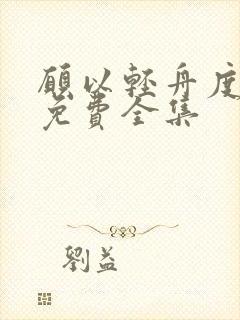 願以輕舟度
免費全集
劉益